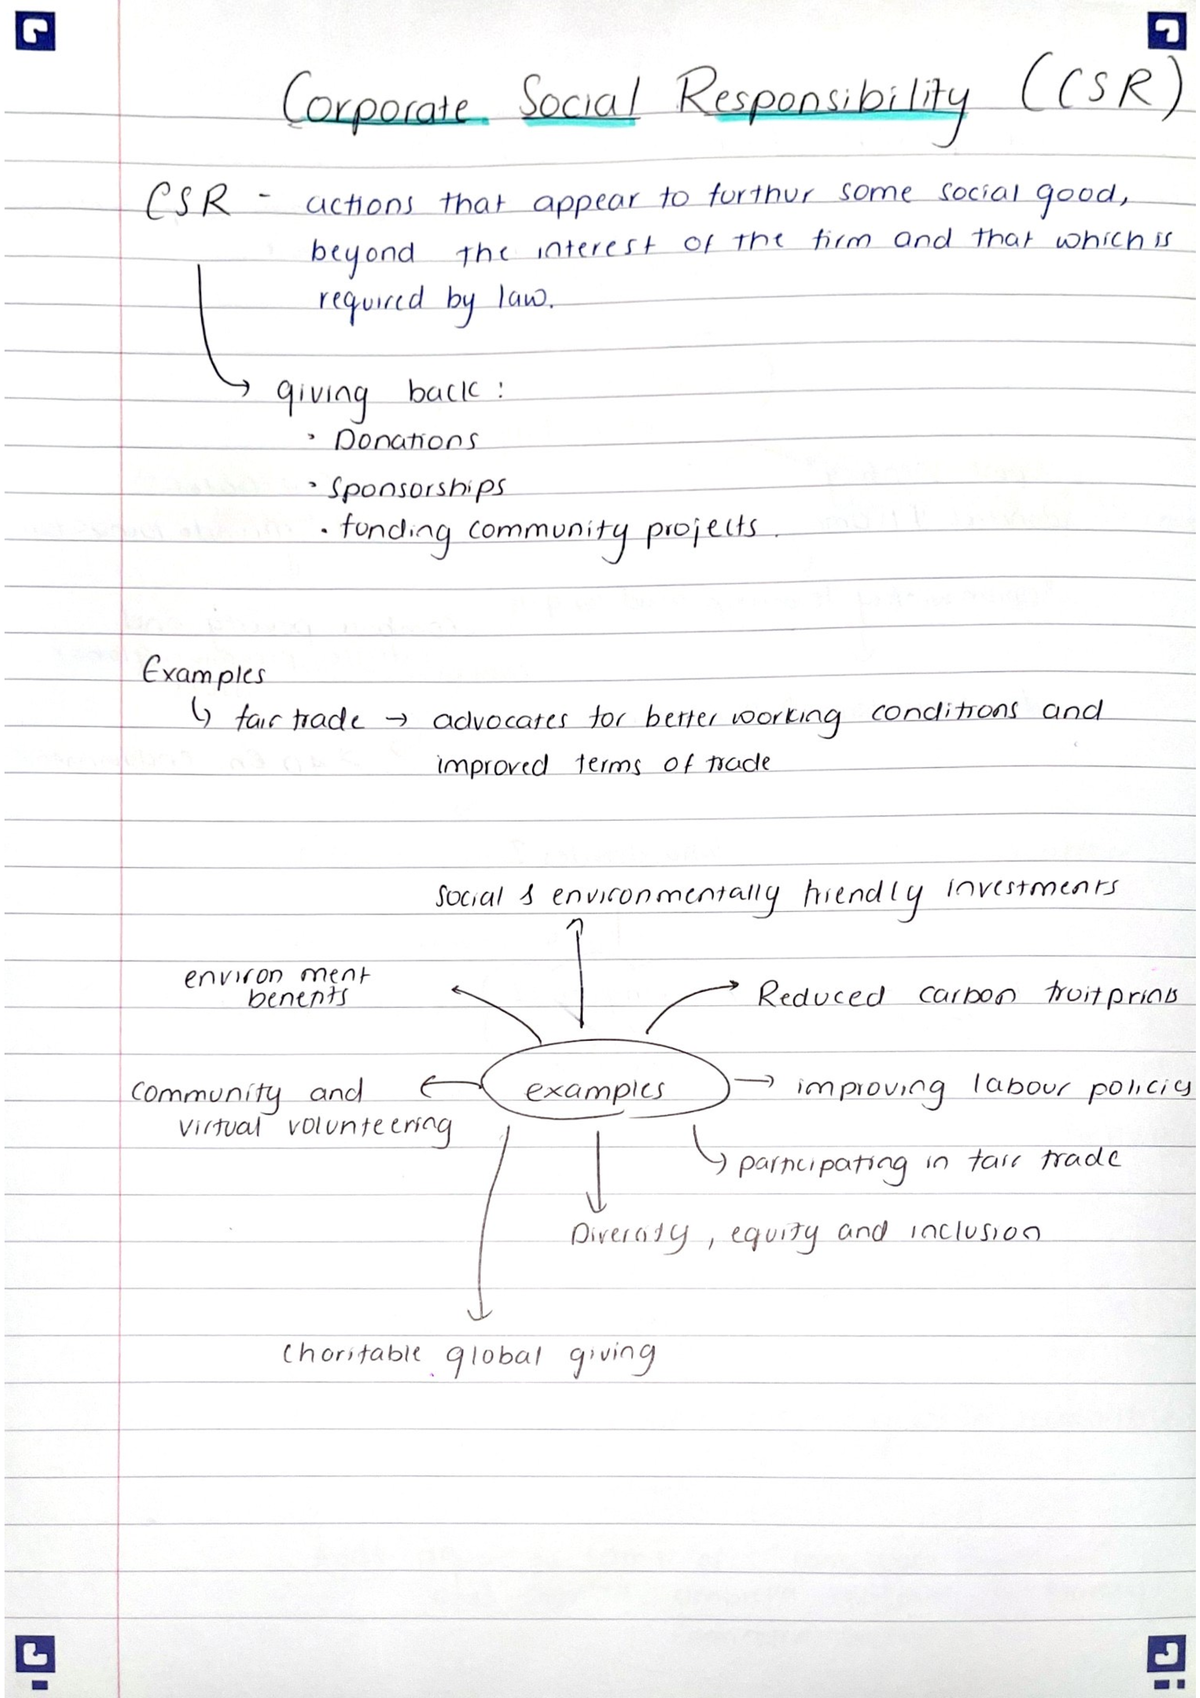 Corporate Social Responsibility (CSR)
CSR - actions that appear to furthur some social good,
beyond the interest of the firm and that which is
required by law.
giving back :
• Donations
• Sponsorships
• funding community projects.
Examples
↳ fair trade → advocates for better working conditions and
improved terms of trade
Social & environmentally friendly investments
environment
benefits
Reduced carbon fruitprints
community and
virtual volunteering
examples
improving labour policies
participating in fair trade
Diversity, equity and inclusion
charitable global giving